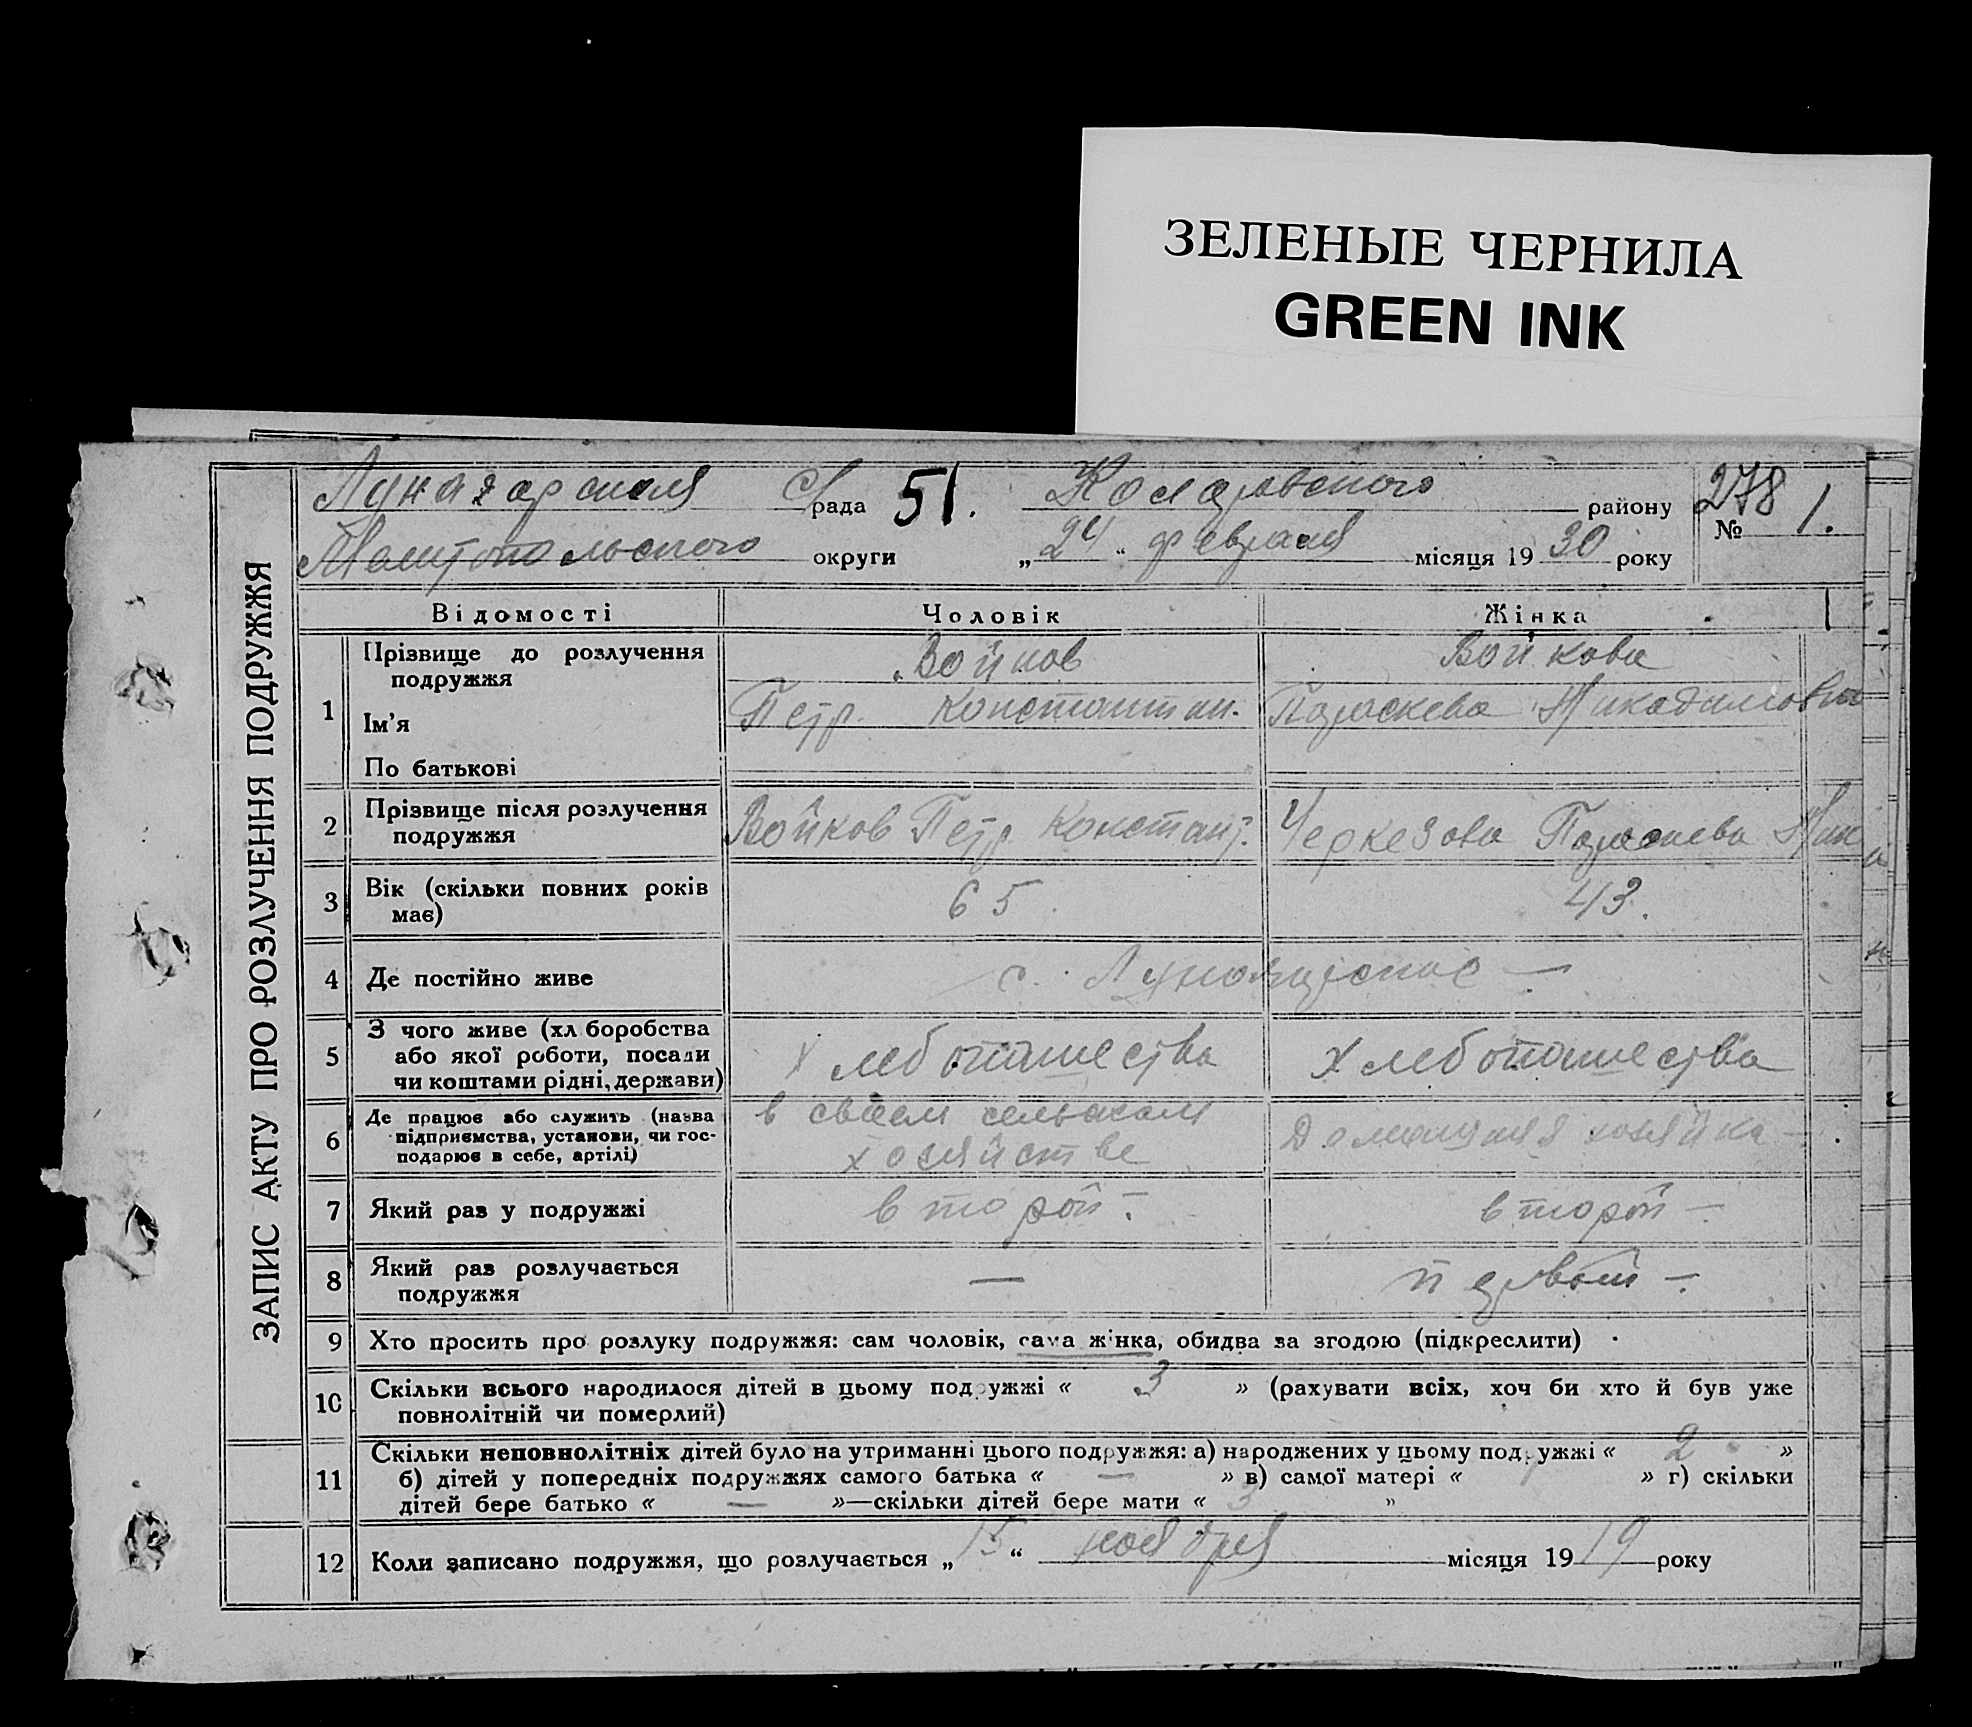 ЗЕЛЕНЫЕ ЧЕРНИЛА
GREEN INK
ЗАПИС АКТУ ПРО РОЗЛУЧЕННЯ ПОДРУЖЖЯ
рада 51. району 278
округи „24“ февраля місяця 1930 року № 1.
Відомості Чоловік Жінка
1 Прізвище до розлучення подружжя Войков Войкова
Ім’я Петр. Константин. Параскева
По батькові
2 Прізвище після розлучення подружжя Войков Петр Констант. Черкезова Параскева Ник
3 Вік (скільки повних років має) 65. 43.
4 Де постійно живе с.
5 З чого живе (хліборобства або якої роботи, посади чи коштами рідні, держави) Хлебопашества Хлебопашества
6 Де працює або служить (назва підприємства, установи, чи господарює в себе, артілі) в своем сельском хозяйстве Домашняя хозяйка
7 Який раз у подружжі второй второй –
8 Який раз розлучається подружжя — первый –
9 Хто просить про розлуку подружжя: сам чоловік, сама жінка, обидва за згодою (підкреслити)
10 Скільки всього народилося дітей в цьому подружжі « 3 » (рахувати всіх, хоч би хто й був уже
повнолітній чи померлий)
11 Скільки неповнолітніх дітей було на утриманні цього подружжя: а) народжених у цьому подружжі « 2 »
б) дітей у попередніх подружжях самого батька « — » в) самої матері « » г) скільки
дітей бере батько « — »—скільки дітей бере мати « 3 »
12 Коли записано подружжя, що розлучається „15“ ноября місяця 1919 року